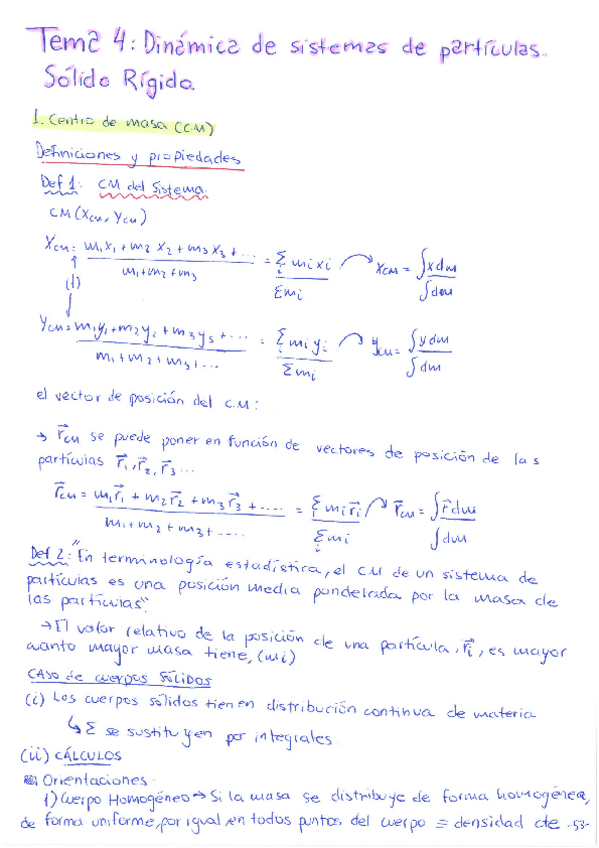 Tema 4: Dinámica de sistemas de partículas.
Sólido Rígido.
1. Centro de masa (CM)
Definiciones y propiedades
Def 1: CM del Sistema
CM (X_CM, Y_CM)
X_CM = (m₁x₁ + m₂x₂ + m₃x₃ + ...)/(m₁ + m₂ + m₃) = Σᵢ mᵢxᵢ / Σmᵢ ↷ x_CM = ∫x dm / ∫dm
(1)
Y_CM = (m₁y₁ + m₂y₂ + m₃y₃ + ...)/(m₁ + m₂ + m₃ + ...) = Σᵢ mᵢyᵢ / Σmᵢ ↷ y_CM = ∫y dm / ∫dm
el vector de posición del C.M:
→ r⃗_CM se puede poner en función de vectores de posición de las
partículas r⃗₁, r⃗₂, r⃗₃...
r⃗_CM = (m₁r⃗₁ + m₂r⃗₂ + m₃r⃗₃ + ....)/(m₁ + m₂ + m₃ + ....) = Σᵢ mᵢr⃗ᵢ / Σᵢ mᵢ ↷ r⃗_CM = ∫r⃗ dm / ∫dm
Def 2: "En terminología estadística, el CM de un sistema de
partículas es una posición media ponderada por la masa de
las partículas".
→ El valor relativo de la posición de una partícula, r⃗ᵢ, es mayor
cuanto mayor masa tiene, (mᵢ)
CASO de cuerpos sólidos
(i) Los cuerpos sólidos tienen distribución continua de materia
↳ Σ se sustituyen por integrales
(ii) CÁLCULOS
Orientaciones.
1) Cuerpo Homogéneo → Si la masa se distribuye de forma homogénea,
de forma uniforme, por igual en todos puntos del cuerpo ≡ densidad cte -53-